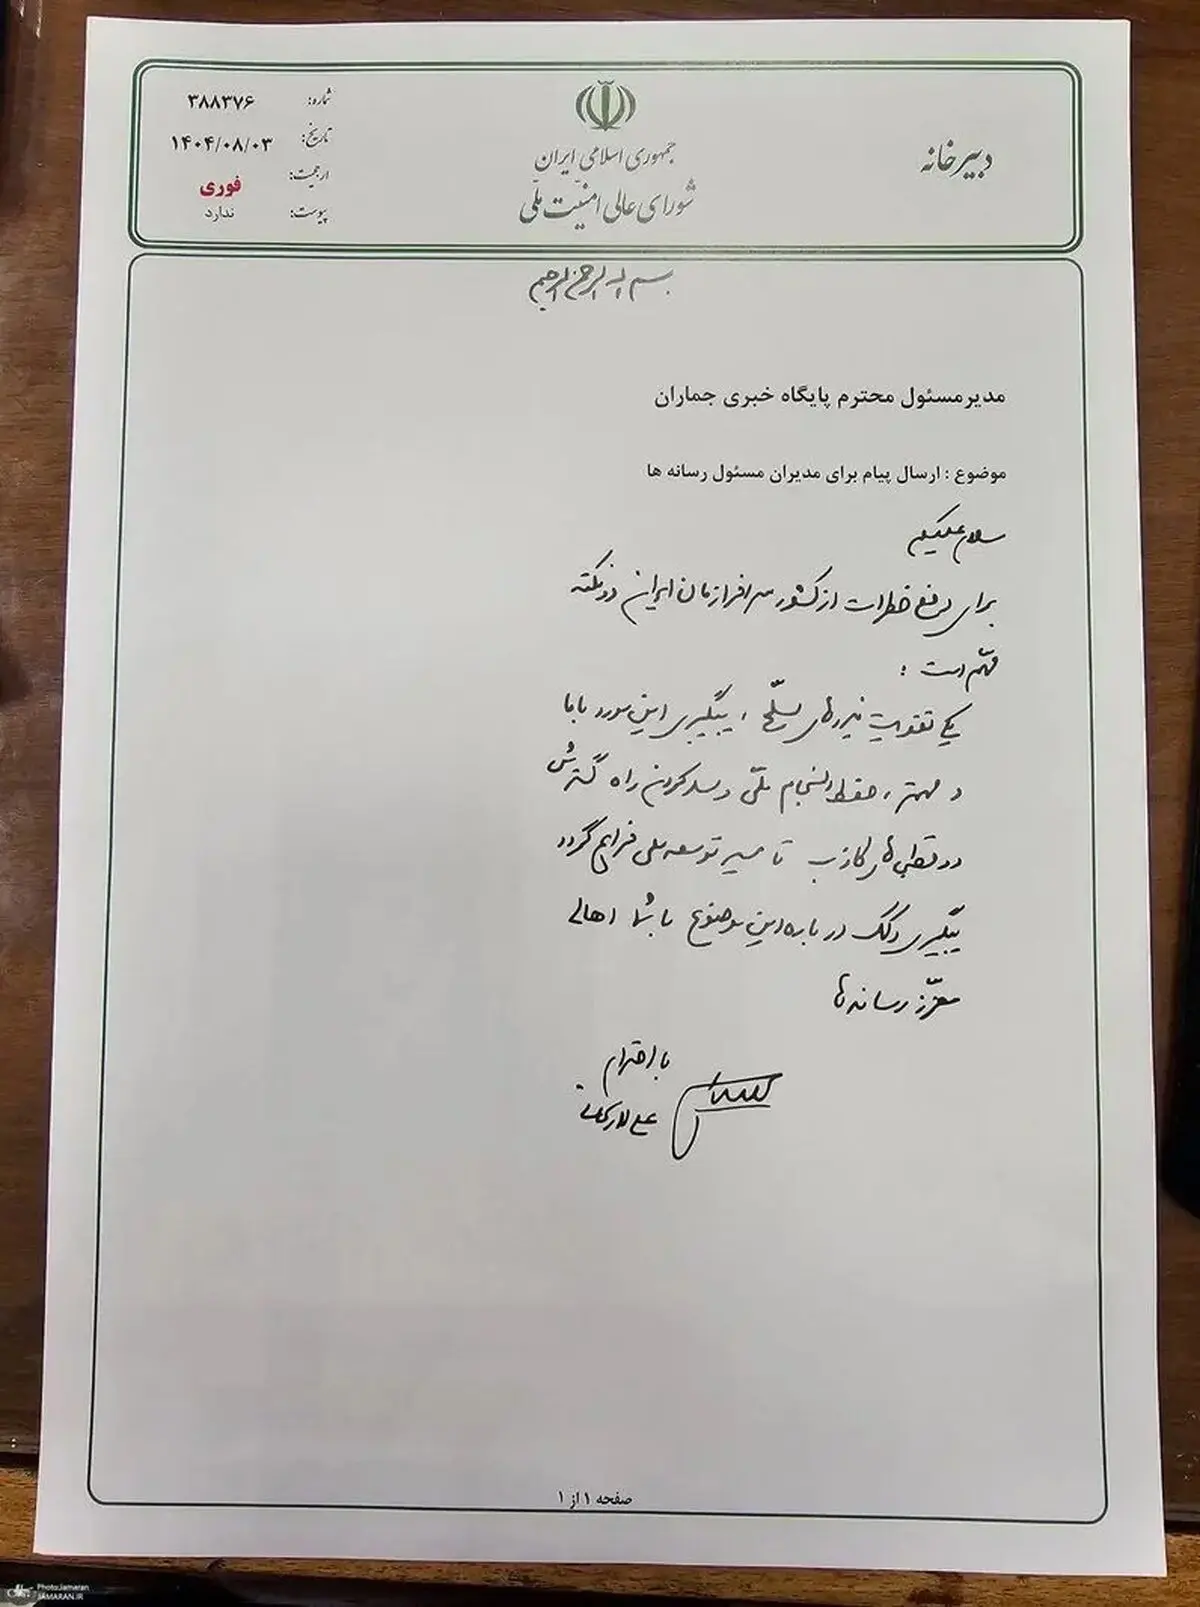 دبیرخانه
جمهوری اسلامی ایران
شورای عالی امنیت ملّی
شماره: ۳۸۸۳۷۶
تاریخ: ۱۴۰۴/۰۸/۰۳
ارجحیت: فوری
پیوست: ندارد
بسم الله الرحمن الرحیم
مدیرمسئول محترم پایگاه خبری جماران
موضوع : ارسال پیام برای مدیران مسئول رسانه ها
سلام علیکم
برای رفع خطرات از کشور سرافرازمان ایران دو نکته
مهمّ است :
یکی تقویت نیروهای مسلّح ، پیگیری این مورد با ما
و مهمتر ، حفظ انسجام ملّی و سد کردن راه گسترش
دو قطبی‌های کاذب تا مسیر توسعه ملی فراهم گردد
پیگیری و کمک درباره این موضوع با شما اهالی
معزّز رسانه‌ها
با احترام
علی لاریجانی
صفحه ۱ از ۱
Photo:Jamaran
JAMARAN.IR